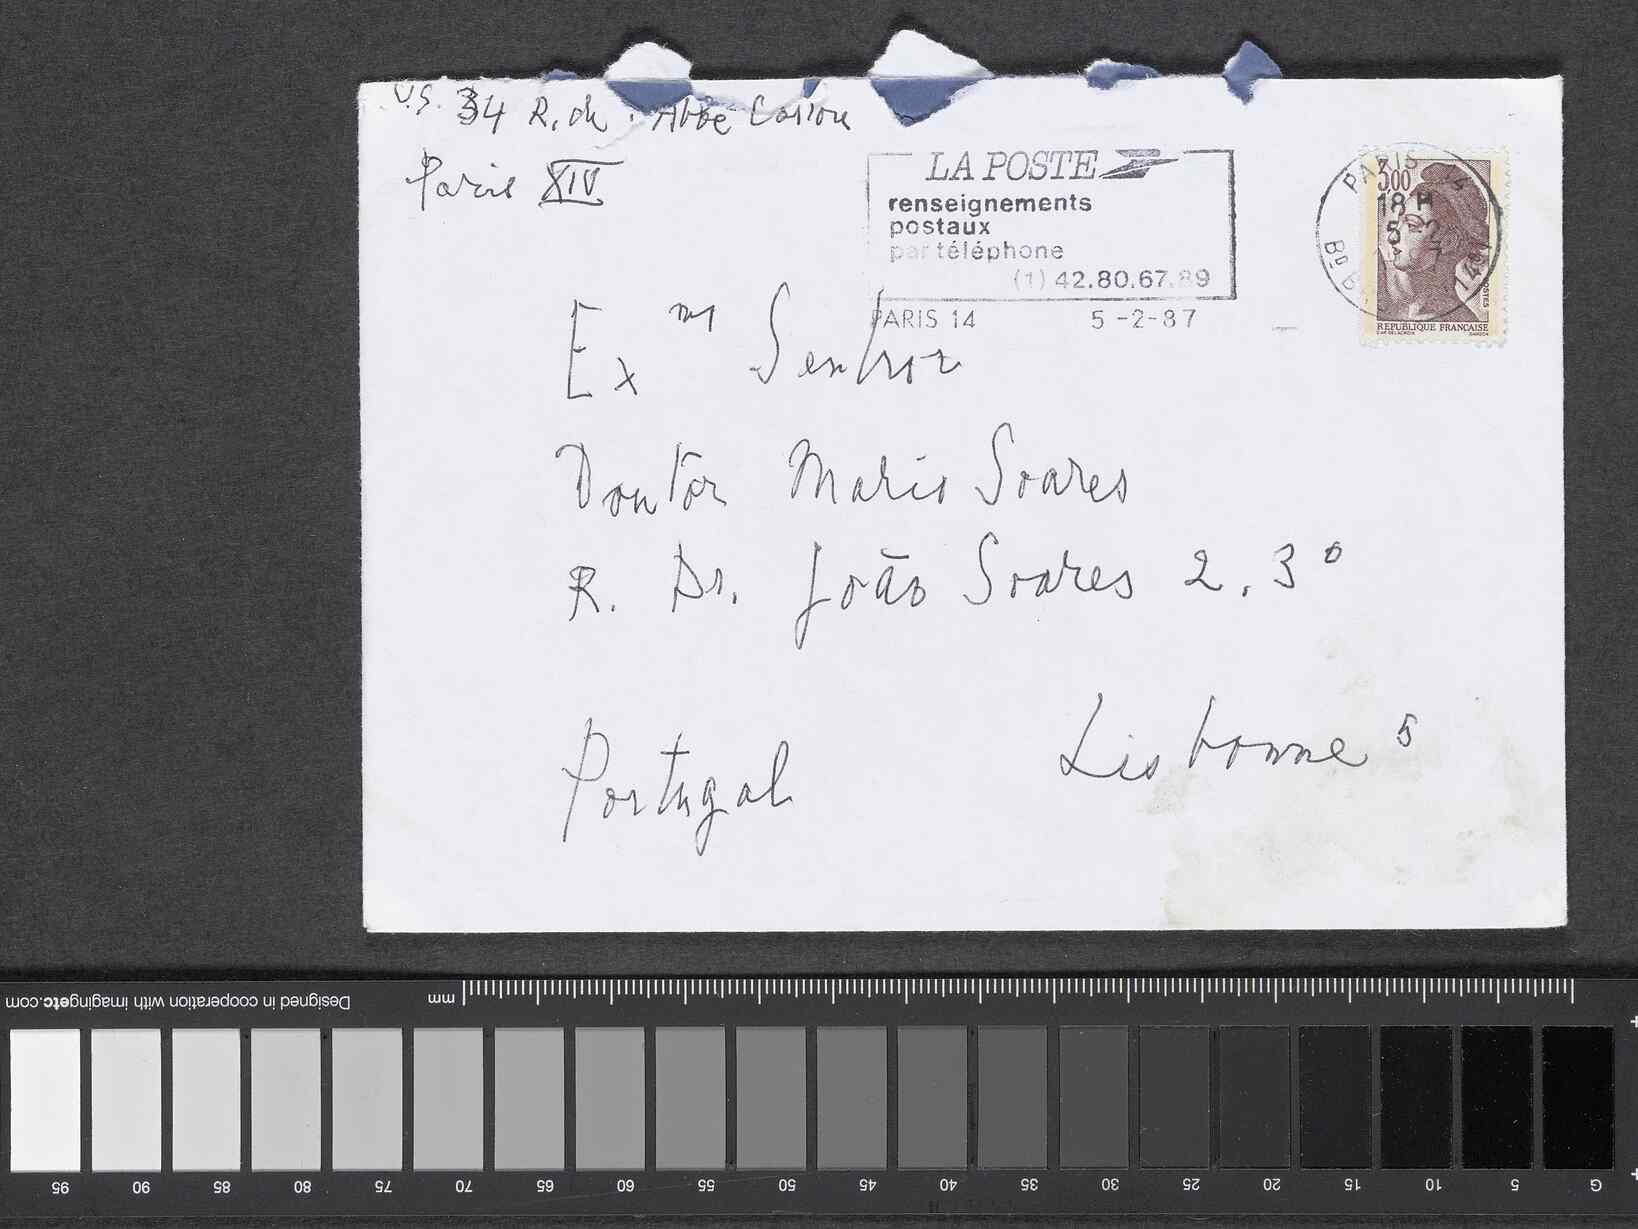 V.S. 34 R. de l'Abbé Carton
Paris XIV
LA POSTE
renseignements
postaux
par téléphone
(1) 42.80.67.89
PARIS 14 5-2-87
PARIS 14
3,00
18 H
5-2
REPUBLIQUE FRANCAISE
POSTES
Ex m Senhor
Doutor Mario Soares
R. Dr. João Soares 2.3º
Lisbonne 5
Portugal
mm
Designed in cooperation with imagingetc.com
95 90 85 80 75 70 65 60 55 50 45 40 35 30 25 20 15 10 5 G